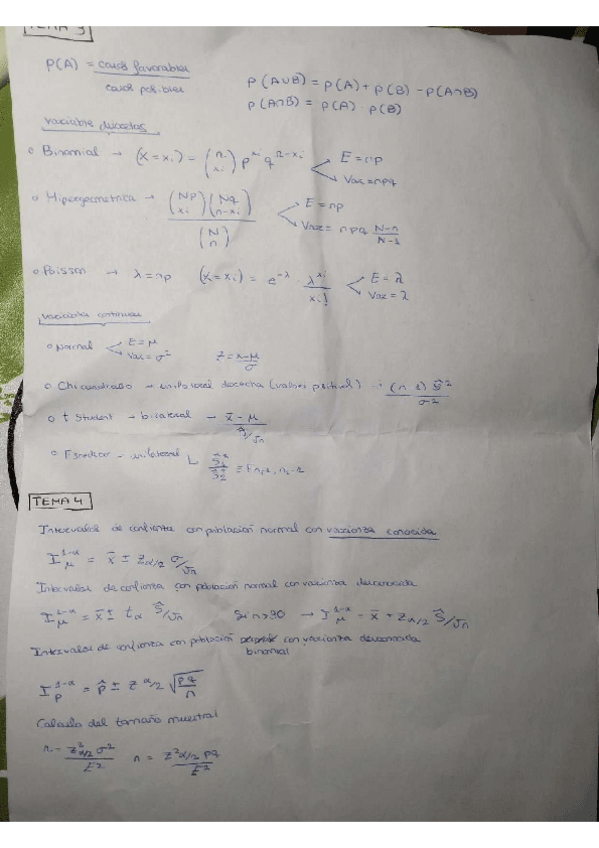 TEMA 3
P(A) = casos favorables / casos posibles
P(A∪B) = P(A) + P(B) - P(A∩B)
P(A∩B) = P(A) · P(B)
variables discretas
o Binomial → (X = xi) = (n xi) p^xi q^n-xi E = np Var = npq
o Hipergeometrica → (Np xi)(Nq n-xi) / (N n) E = np Varz = npq N-n / N-1
o Poisson → λ = np (X = xi) = e^-λ λ^xi / xi! E = λ Var = λ
variables continuas
o Normal E = μ Var = σ² Z = x-μ / σ
o Chi cuadrado → unilateral derecha (valores positivos) (n-1) Ŝ² / σ²
o t Student → bilateral → x̄ - μ / Ŝ/√n
o F Snedecor - unilateral Ŝ1² / Ŝ2² =
TEMA 4
Intervalos de confianza con población normal con varianza conocida
I μ^1-α = x̄ ± Zα/2 σ/√n
Intervalos de confianza con población normal con varianza desconocida
I μ^1-α = x̄ ± tα Ŝ/√n Si n>30 → I μ^1-α = x̄ ± Zα/2 Ŝ/√n
Intervalos de confianza con población con varianza desconocida
binomial
I p^1-α = p̂ ± Z α/2 √pq/n
Calculo del tamaño muestral
n = Z²α/2 σ² / E² n = Z²α/2 pq / E²